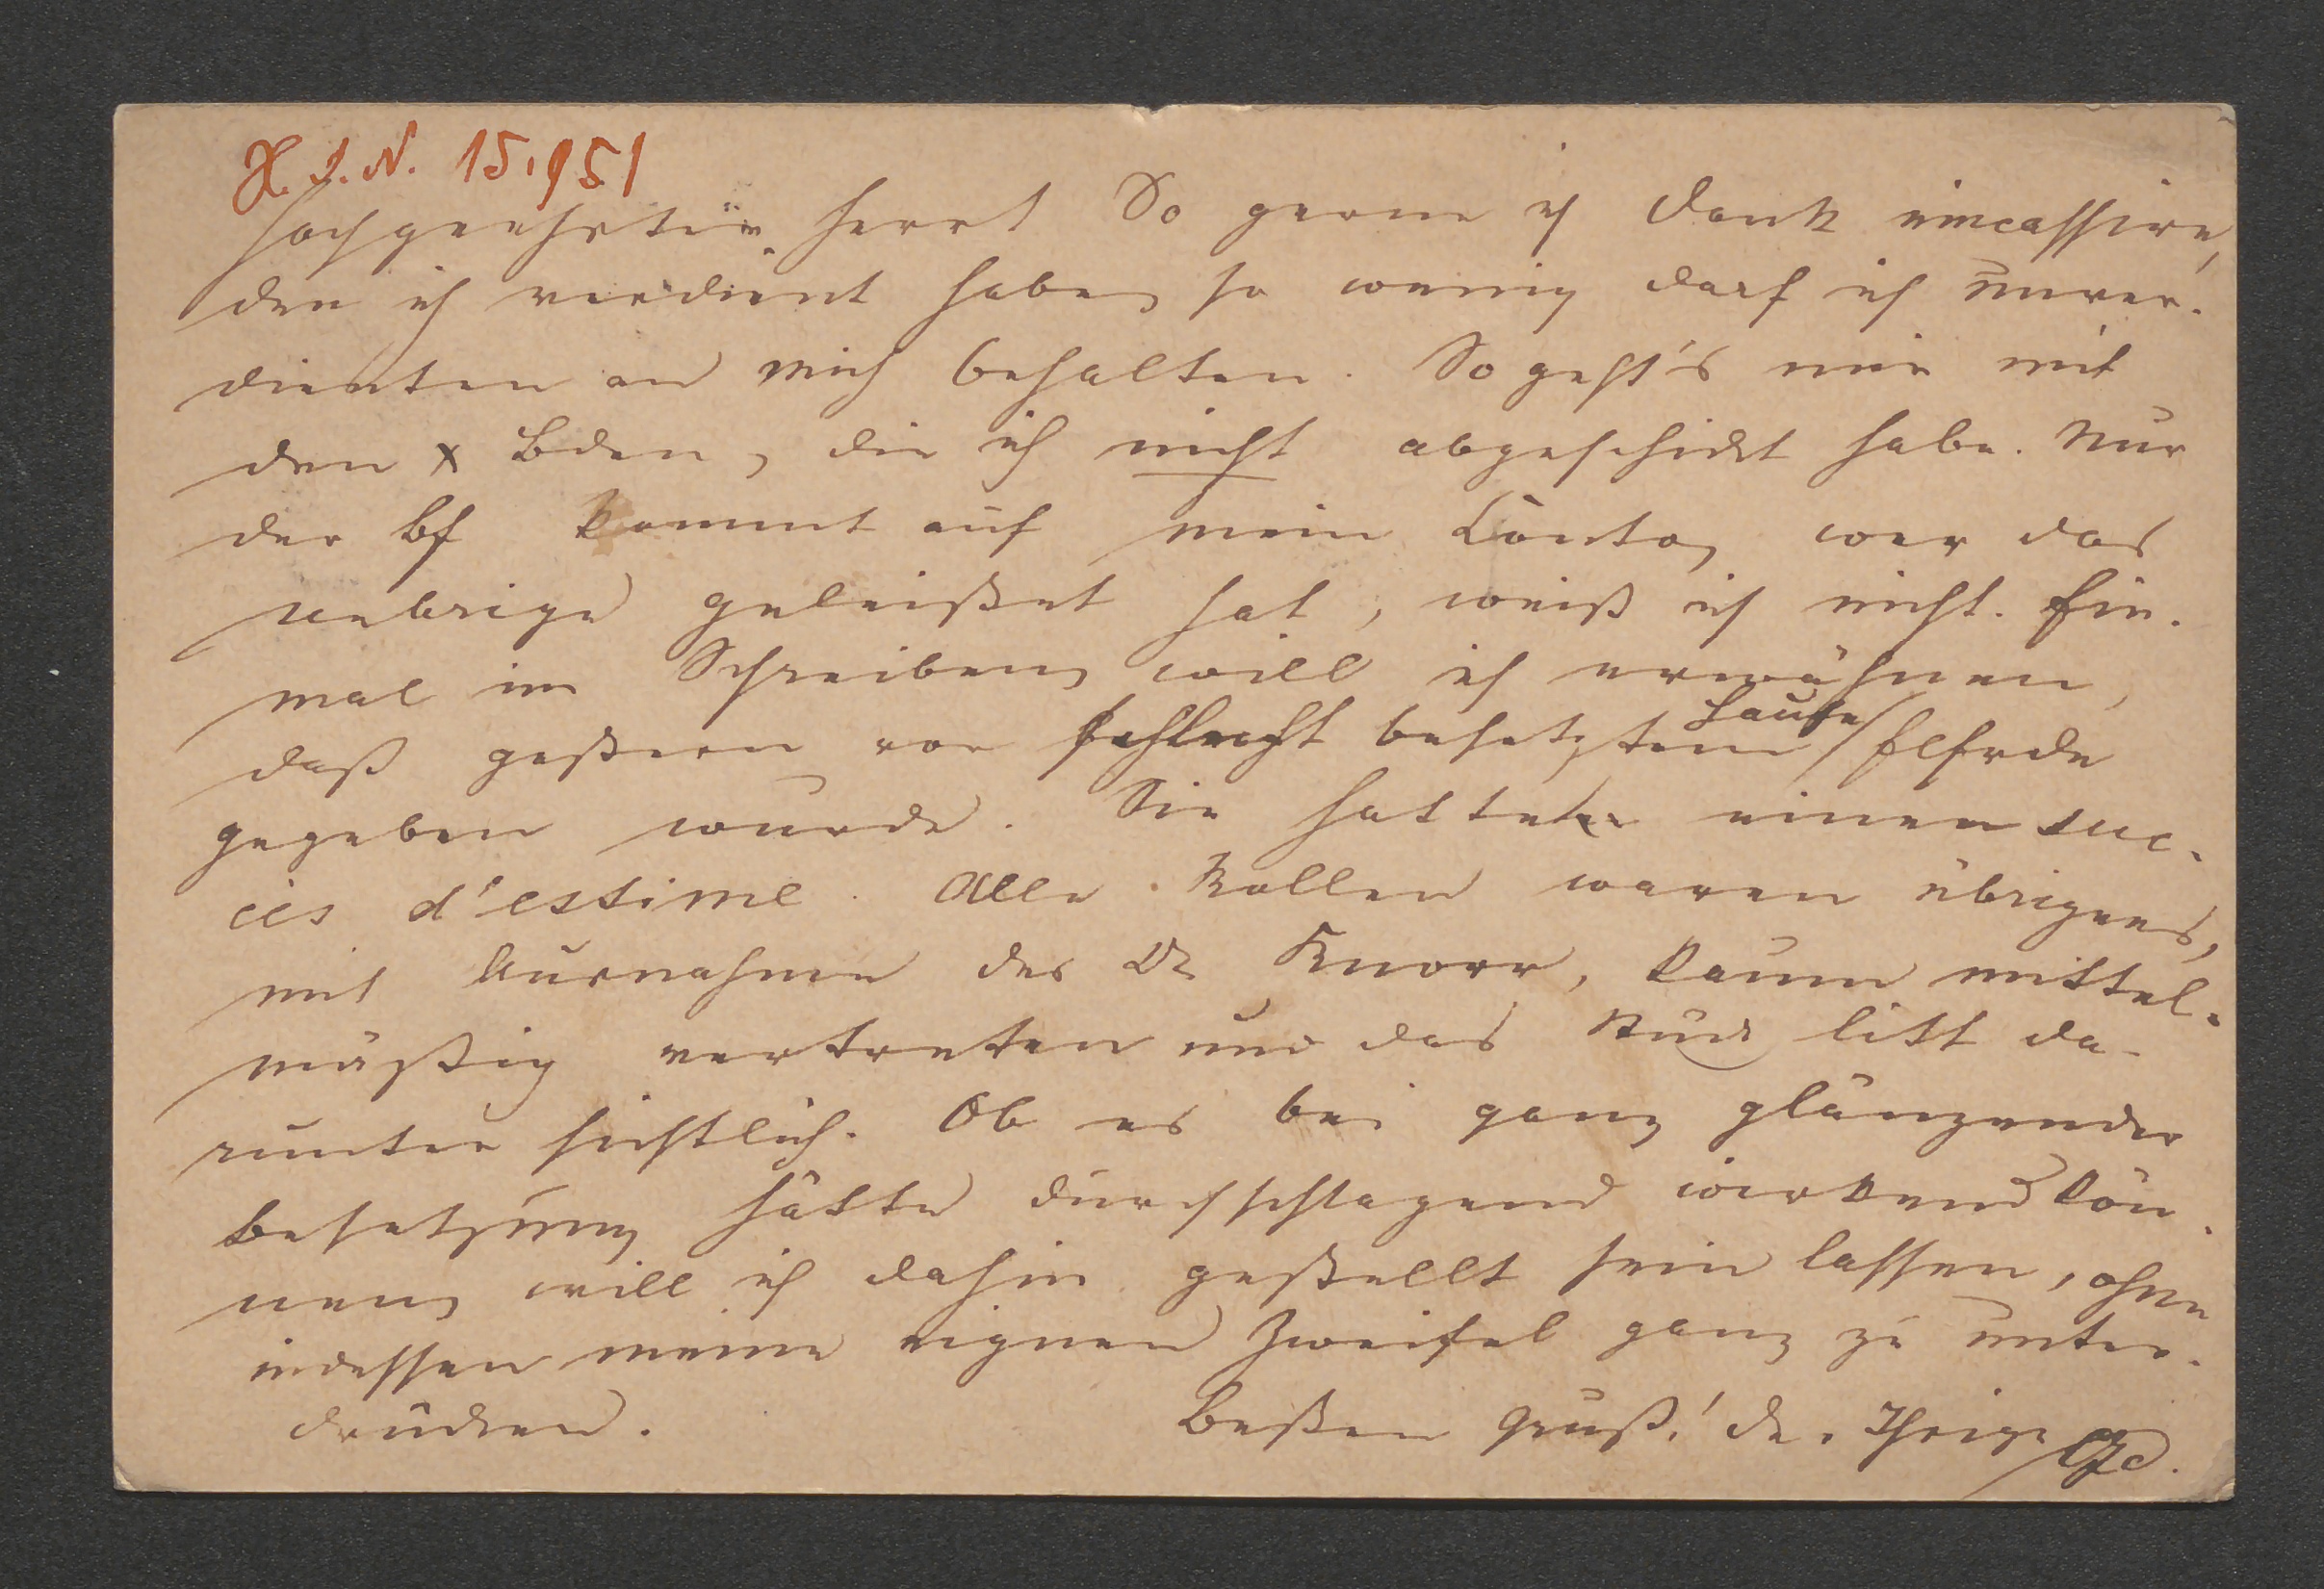 H. I. N. 15.951
Hochgeehrter Herr! So gerne ich Dank eincassire,
den ich verdient habe, so wenig darf ich unver-
dienten an mich behalten. So geht's mir mit
den x Bden, die ich nicht abgeschickt habe. Nur
der Bf kommt auf mein Conto, wer das
Uebrige geleistet hat, weiß ich nicht. Ein-
mal im Schreiben, will ich erwähnen,
daß gestern vor schlecht besetztem Hause Elfrede
gegeben wurde. Sie hatte einen suc-
cès d'estime. Alle Rollen waren übrigens,
mit Ausnahme des Dr Knorr, kaum mittel-
mäßig vertreten und das Stück litt da-
runter sichtlich. Ob es bei ganz glänzender
Besetzung hätte durchschlagend wirken kön-
nen, will ich dahin gestellt sein lassen, ohne
indessen meine eignen Zweifel ganz zu unter-
drücken.
Besten Gruß! der Ihrige